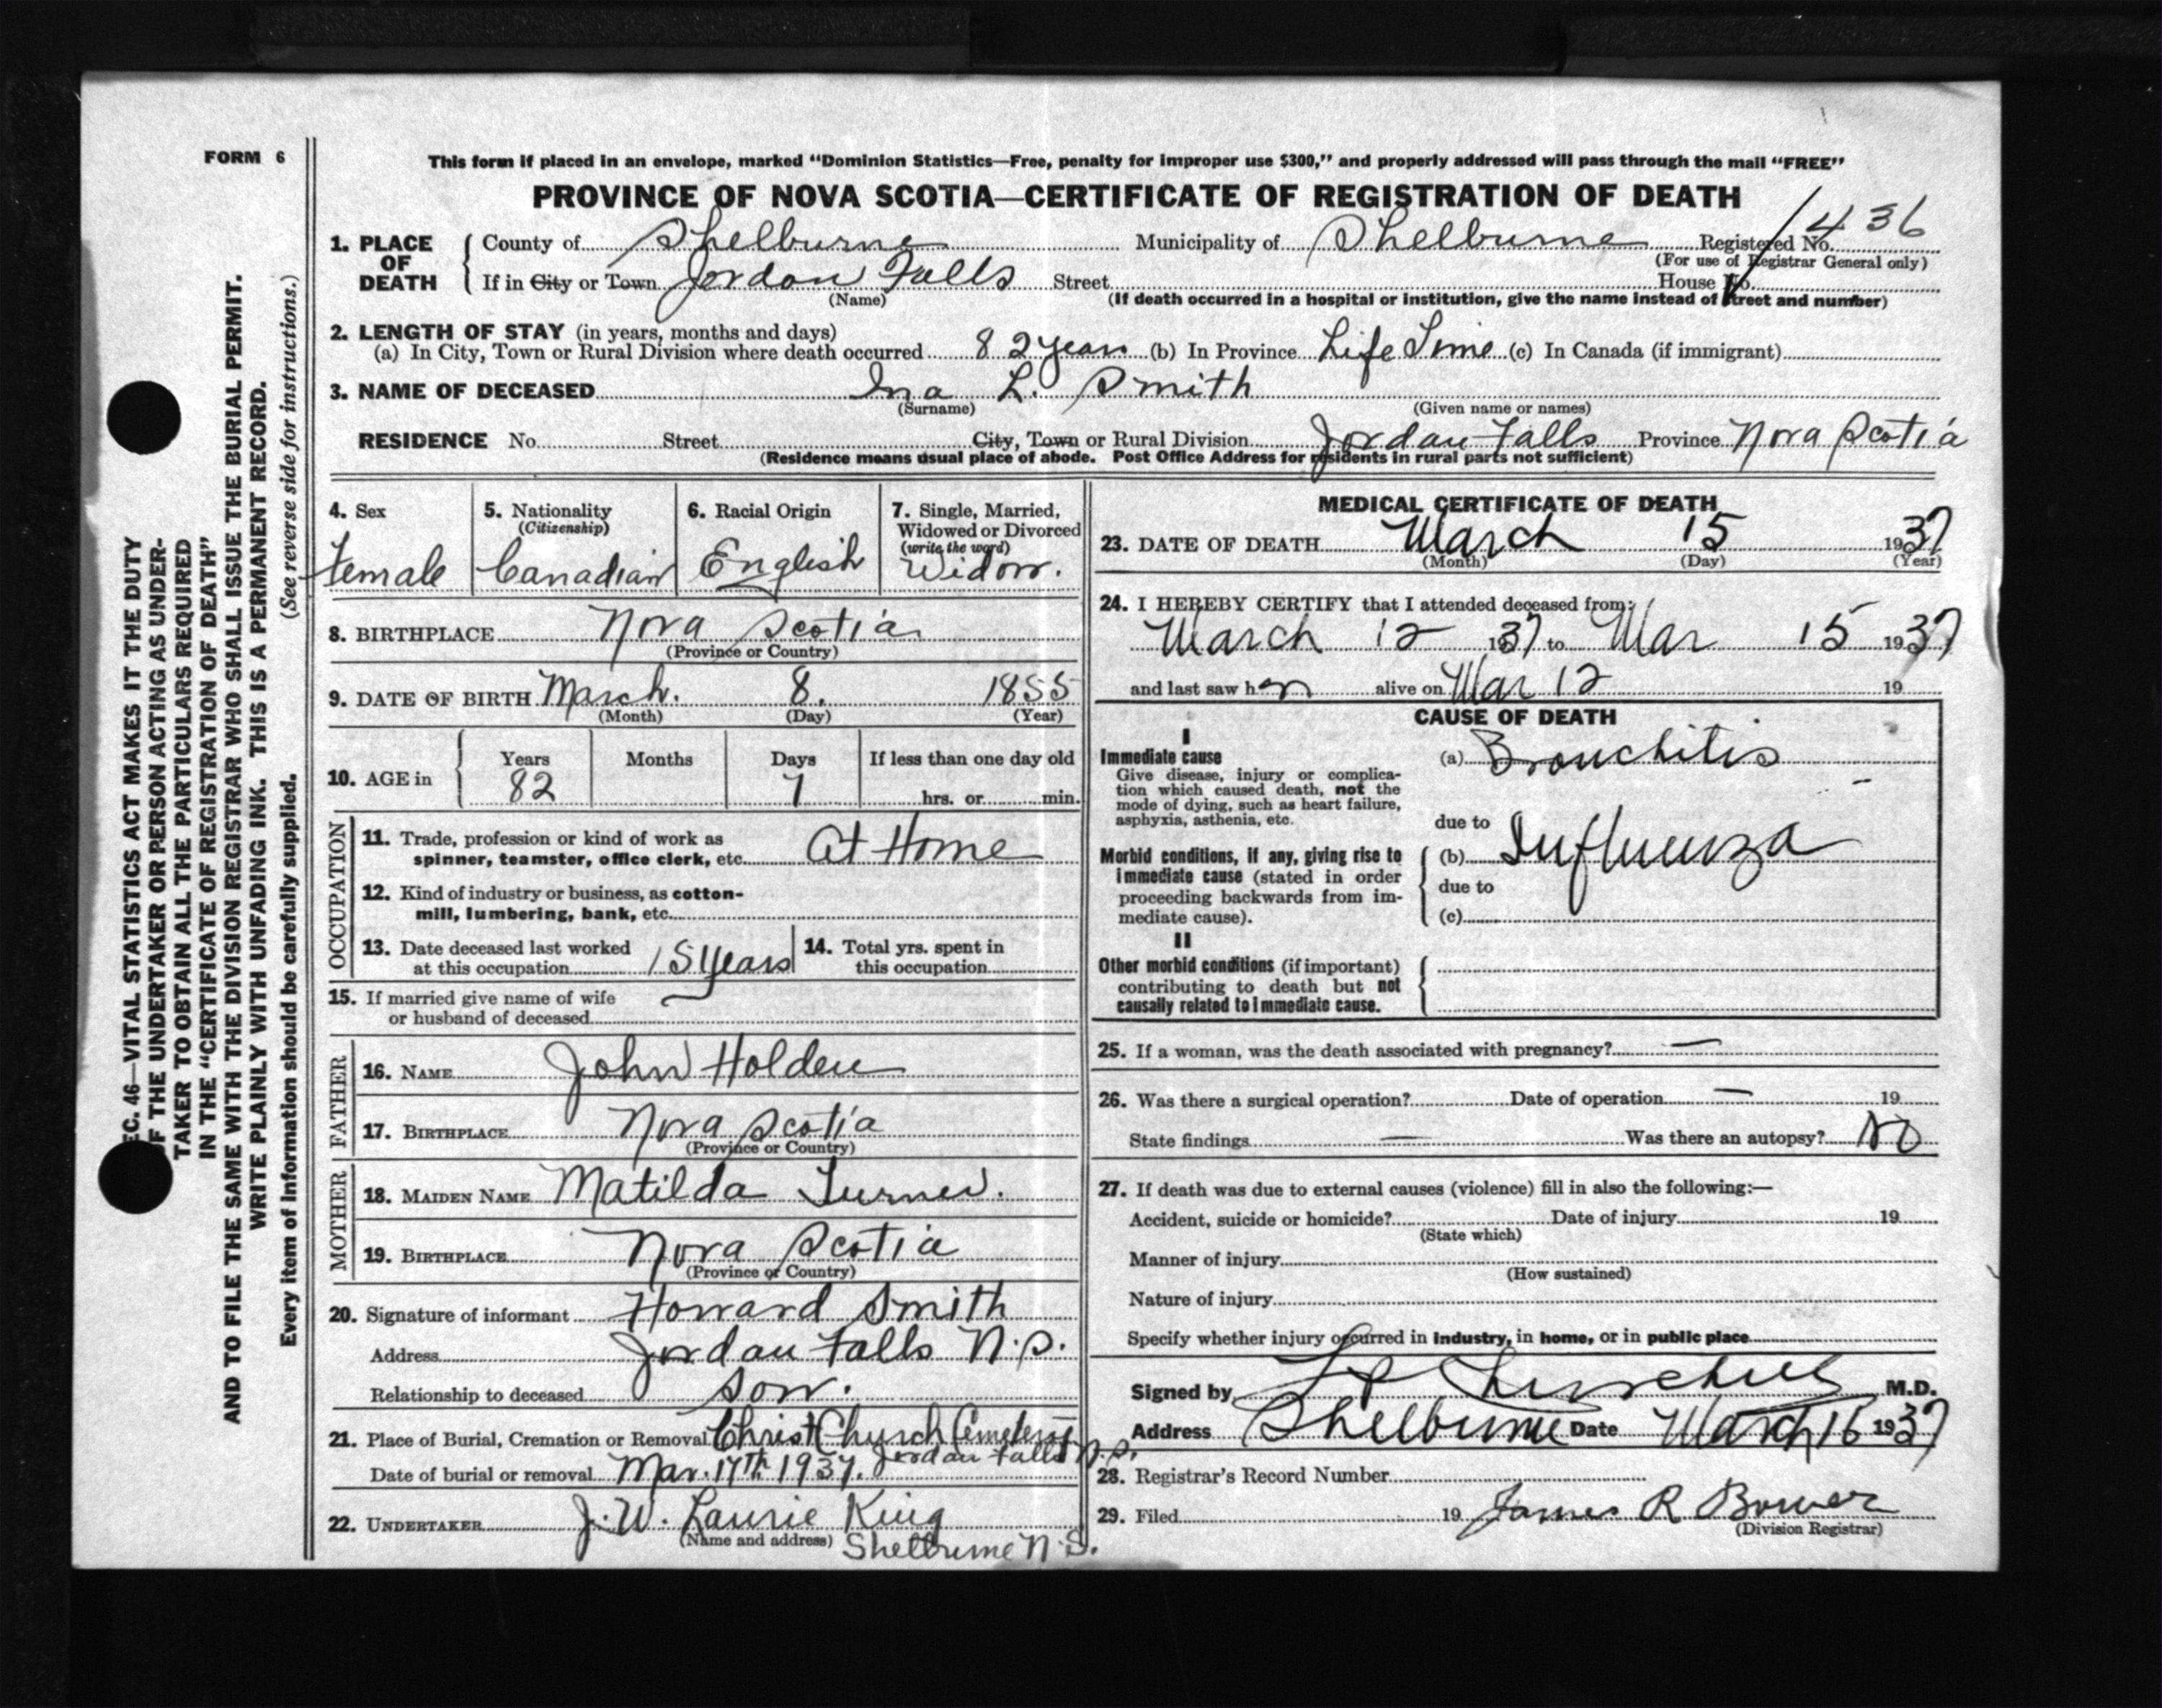 FORM 6
This form if placed in an envelope, marked "Dominion Statistics—Free, penalty for improper use $300," and properly addressed will pass through the mail "FREE"
PROVINCE OF NOVA SCOTIA—CERTIFICATE OF REGISTRATION OF DEATH
1. PLACE OF DEATH County of Shelburne Municipality of Shelburne Registered No. 1436
(For use of Registrar General only)
If in City or Town Jordan Falls Street House No.
(Name) (If death occurred in a hospital or institution, give the name instead of street and number)
2. LENGTH OF STAY (in years, months and days)
(a) In City, Town or Rural Division where death occurred 82 years (b) In Province Life Time (c) In Canada (if immigrant)
3. NAME OF DECEASED Ina L. Smith
(Surname) (Given name or names)
RESIDENCE No. Street City, Town or Rural Division Jordan Falls Province Nova Scotia
(Residence means usual place of abode. Post Office Address for residents in rural parts not sufficient)
4. Sex 5. Nationality 6. Racial Origin 7. Single, Married,
(Citizenship) Widowed or Divorced
(write the word)
Female Canadian English Widow.
8. BIRTHPLACE Nova Scotia
(Province or Country)
9. DATE OF BIRTH March. 8. 1855
(Month) (Day) (Year)
10. AGE in Years Months Days If less than one day old
82 7 hrs. or min.
OCCUPATION
11. Trade, profession or kind of work as
spinner, teamster, office clerk, etc. At Home
12. Kind of industry or business, as cotton-
mill, lumbering, bank, etc.
13. Date deceased last worked
at this occupation 15 years
14. Total yrs. spent in
this occupation
15. If married give name of wife
or husband of deceased
FATHER
16. NAME John Holden
17. BIRTHPLACE Nova Scotia
(Province or Country)
MOTHER
18. MAIDEN NAME Matilda Turner.
19. BIRTHPLACE Nova Scotia
(Province or Country)
20. Signature of informant Howard Smith
Address Jordan Falls N.S.
Relationship to deceased Son.
21. Place of Burial, Cremation or Removal Christ Church Cemetery
Jordan Falls N.S.
Date of burial or removal Mar. 17th 1937.
22. UNDERTAKER J. W. Laurie King
(Name and address) Shelburne N.S.
MEDICAL CERTIFICATE OF DEATH
23. DATE OF DEATH March 15 1937
(Month) (Day) (Year)
24. I HEREBY CERTIFY that I attended deceased from:
March 12 1937 to Mar 15 1937
and last saw her alive on Mar 12 19
CAUSE OF DEATH
I
Immediate cause (a) Bronchitis
Give disease, injury or complica-
tion which caused death, not the
mode of dying, such as heart failure,
asphyxia, asthenia, etc.
due to
Morbid conditions, if any, giving rise to (b) Influenza
immediate cause (stated in order
proceeding backwards from im- due to
mediate cause). (c)
II
Other morbid conditions (if important)
contributing to death but not
causally related to immediate cause.
25. If a woman, was the death associated with pregnancy? —
26. Was there a surgical operation? Date of operation — 19
State findings — Was there an autopsy? No
27. If death was due to external causes (violence) fill in also the following:—
Accident, suicide or homicide? Date of injury 19
(State which)
Manner of injury
(How sustained)
Nature of injury
Specify whether injury occurred in industry, in home, or in public place
Signed by Churchill M.D.
Address Shelburne Date March 16 1937
28. Registrar's Record Number
29. Filed 19 James R Bower
(Division Registrar)
SEC. 46—VITAL STATISTICS ACT MAKES IT THE DUTY
OF THE UNDERTAKER OR PERSON ACTING AS UNDER-
TAKER TO OBTAIN ALL THE PARTICULARS REQUIRED
IN THE "CERTIFICATE OF REGISTRATION OF DEATH"
AND TO FILE THE SAME WITH THE DIVISION REGISTRAR WHO SHALL ISSUE THE BURIAL PERMIT.
WRITE PLAINLY WITH UNFADING INK. THIS IS A PERMANENT RECORD.
Every item of Information should be carefully supplied. (See reverse side for instructions.)